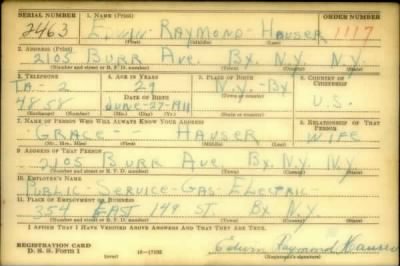 SERIAL NUMBER 1. NAME (Print) ORDER NUMBER
2463 RAYMOND - HAUSER 1117
(First) (Middle) (Last)
2. ADDRESS (Print)
2105 BURR AVE. BX. N.Y. NY
(Number and street or R. F. D. number) (Town) (County) (State)
3. TELEPHONE 4. AGE IN YEARS 5. PLACE OF BIRTH 6. COUNTRY OF CITIZENSHIP
TA - 2 29 N.Y. - BX
DATE OF BIRTH (Town or county)
4858 JUNE-27-1911 U.S.
(Exchange) (Number) (Mo.) (Day) (Yr.) (State or country)
7. NAME OF PERSON WHO WILL ALWAYS KNOW YOUR ADDRESS 8. RELATIONSHIP OF THAT PERSON
GRACE - - HAUSER WIFE
(Mr., Mrs., Miss) (First) (Middle) (Last)
9. ADDRESS OF THAT PERSON
2105 BURR AVE BX. N.Y. NY.
(Number and street or R. F. D. number) (Town) (County) (State)
10. EMPLOYER'S NAME
PUBLIC - SERVICE - GAS - ELECTRIC -
11. PLACE OF EMPLOYMENT OR BUSINESS
354 EAST 149 ST. BX NY.
(Number and street or R. F. D. number) (Town) (County) (State)
I AFFIRM THAT I HAVE VERIFIED ABOVE ANSWERS AND THAT THEY ARE TRUE.
REGISTRATION CARD
D. S. S. Form 1 (over) Edwin Raymond Hauser
(Registrant's signature)